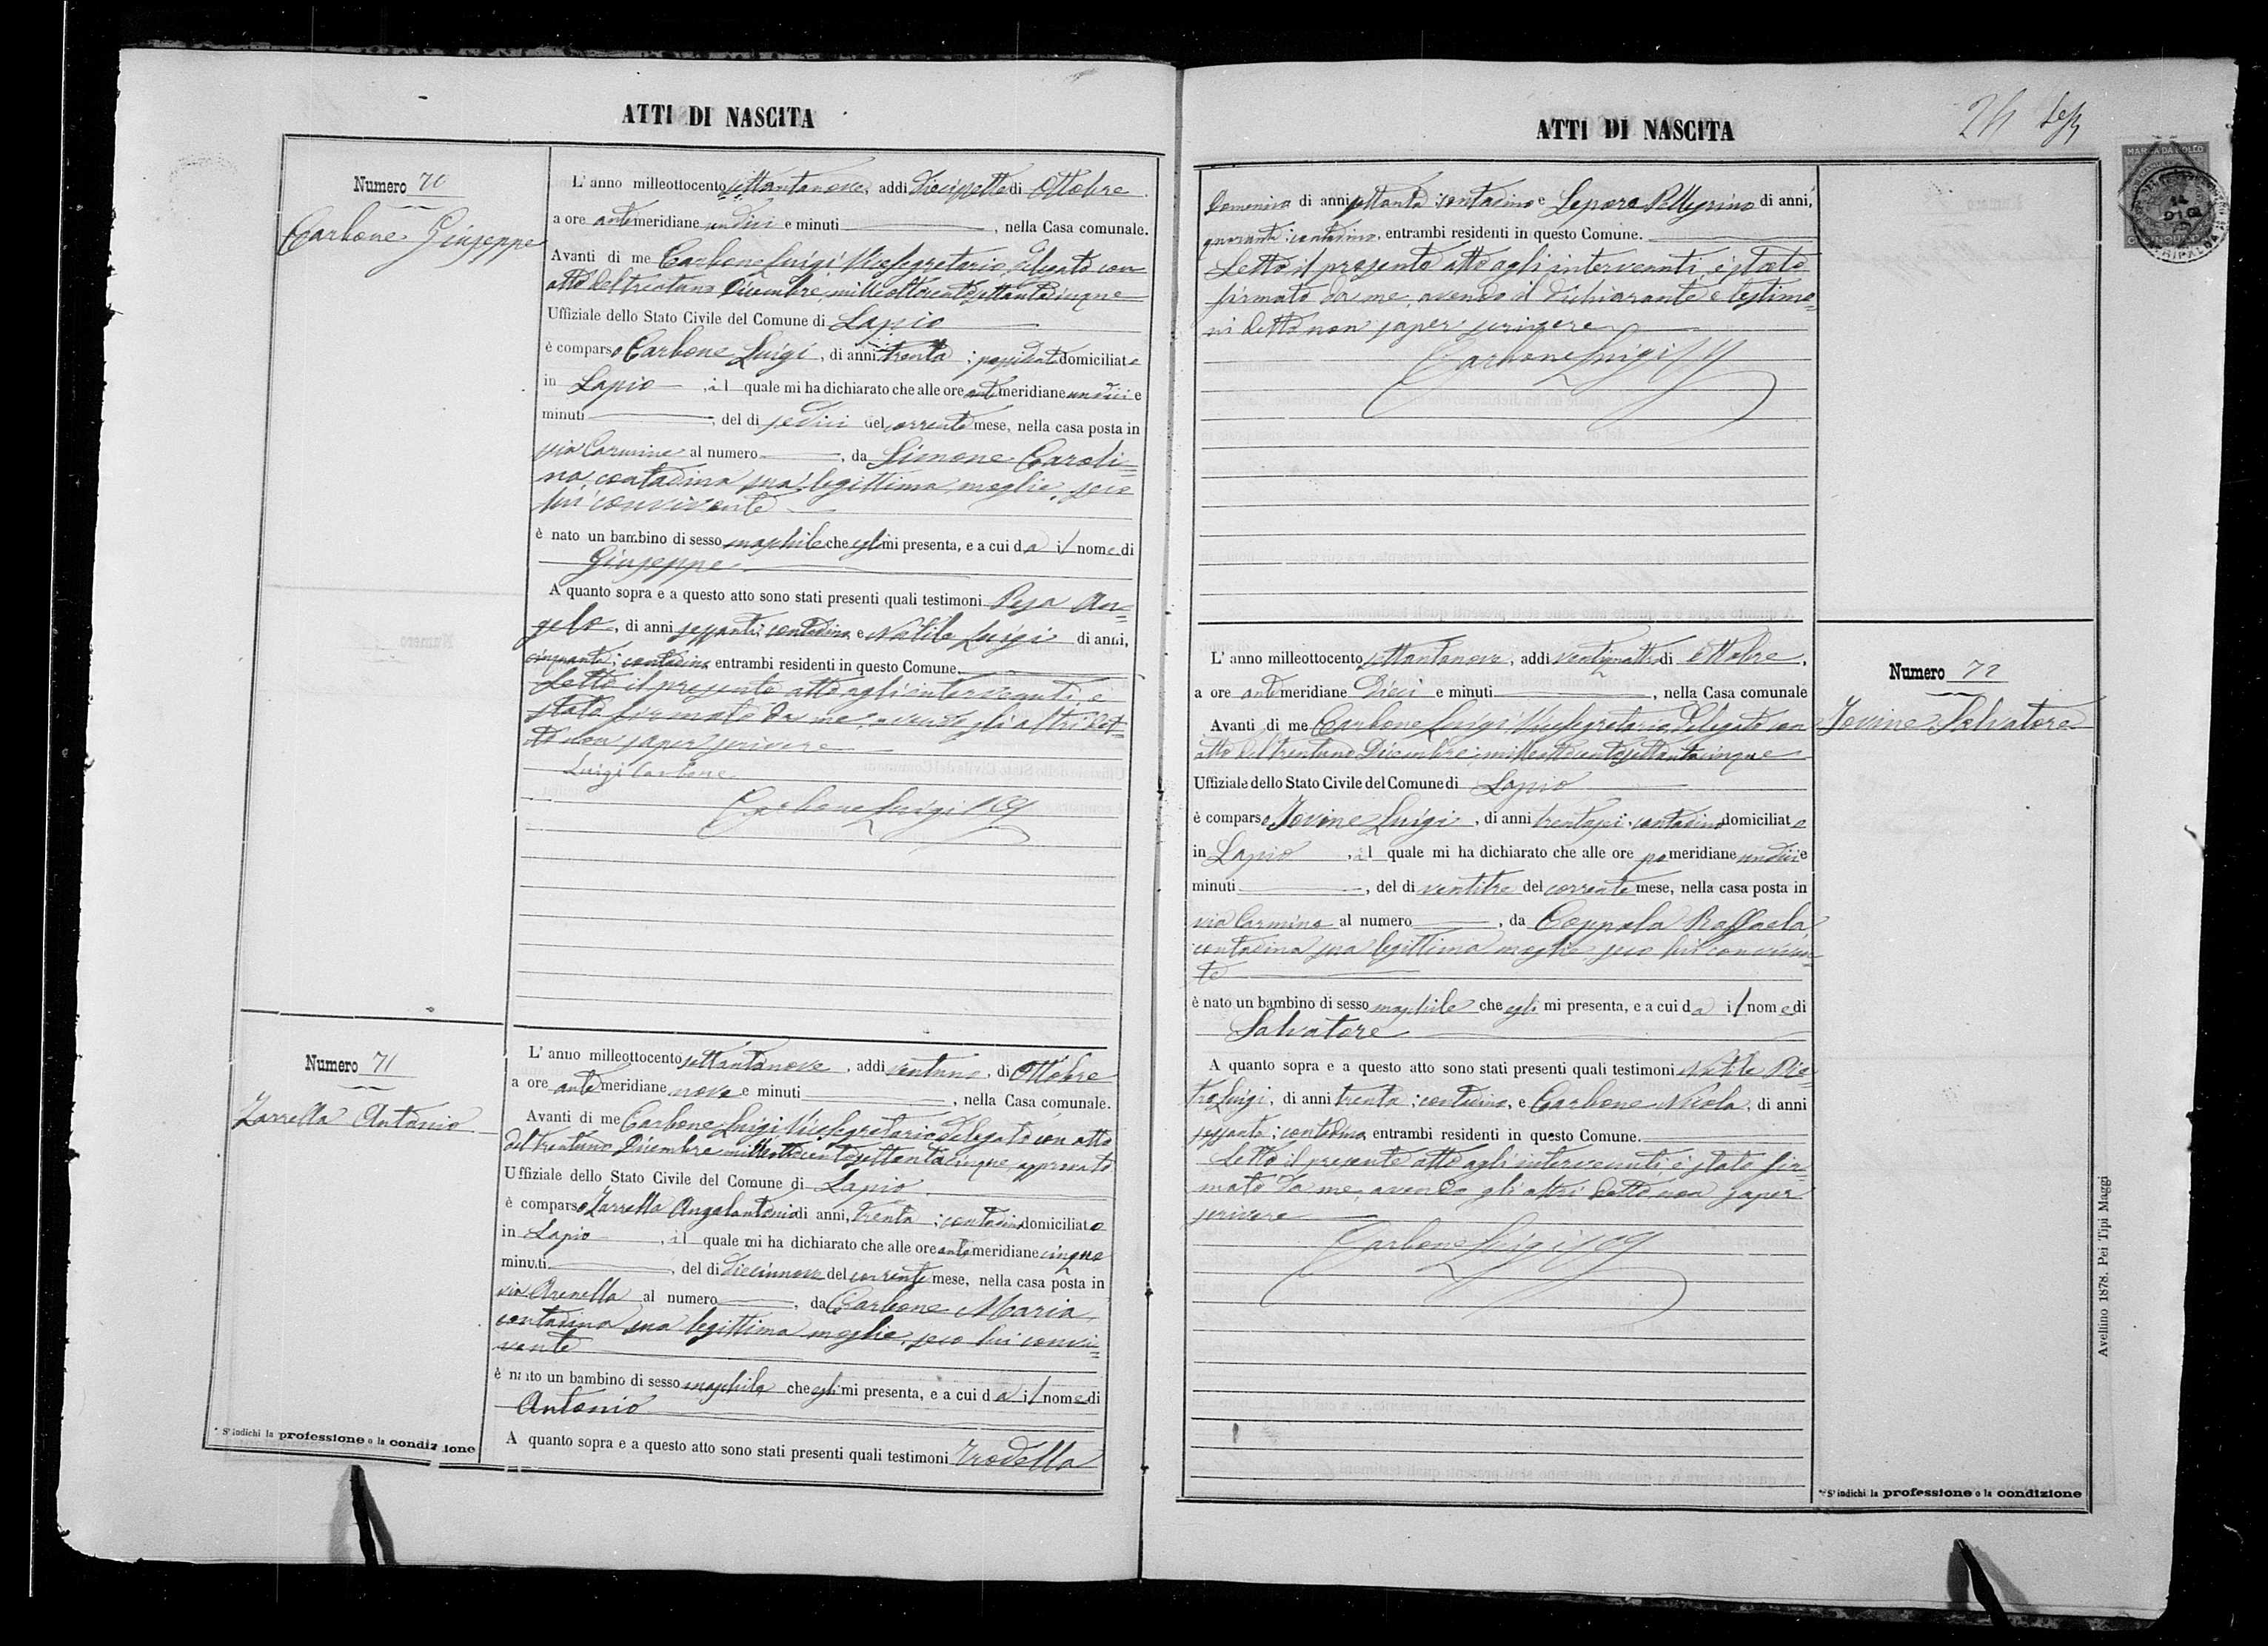 ATTI DI NASCITA
Numero 70
Carbone Giuseppe
L'anno milleottocento settantanove, addi diecisette di Ottobre
a ore antemeridiane undici e minuti , nella Casa comunale.
Avanti di me Carbone Luigi Vicesegretario, delegato con
atto del trentuno Dicembre milleottocentosettantacinque
Uffiziale dello Stato Civile del Comune di Lapio
è comparso Carbone Luigi, di anni trenta; domiciliato
in Lapio , il quale mi ha dichiarato che alle ore antemeridiane undici e
minuti , del dì sedici del corrente mese, nella casa posta in
via Carmine al numero , da Simone Caroli=
na, contadina sua legittima moglie, seco
lui convivente
è nato un bambino di sesso maschile che egli mi presenta, e a cui dà il nome di
Giuseppe
A quanto sopra e a questo atto sono stati presenti quali testimoni An=
gelo, di anni sessanta; contadino e Natile Luigi di anni,
cinquanta; contadino entrambi residenti in questo Comune.
Letto il presente atto agli intervenuti, è
stato firmato da me, avendo gli altri det=
to non saper scrivere
Luigi Carbone
Carbone Luigi
Numero 71
Zarrella Antonio
L'anno milleottocento settantanove, addi ventuno, di Ottobre
a ore antemeridiane nove e minuti , nella Casa comunale.
Avanti di me Carbone Luigi Vicesegretario delegato con atto
del trentuno Dicembre milleottocentosettantacinque, approvato
Uffiziale dello Stato Civile del Comune di Lapio
è comparso Zarrella Angelantonio di anni, trenta; contadino domiciliato
in Lapio , il quale mi ha dichiarato che alle ore antemeridiane cinque
minuti , del dì diecinnove del corrente mese, nella casa posta in
via Arenella al numero , da Carbone Maria,
contadina sua legittima moglie, seco lui convi=
vente
è nato un bambino di sesso maschile che egli mi presenta, e a cui dà il nome di
Antonio
A quanto sopra e a questo atto sono stati presenti quali testimoni Trodella
* S'indichi la professione o la condizione
ATTI DI NASCITA
24
MARCA DA BOLLO
Domenico di anni settanta contadino e Lepore Pellegrino di anni,
quaranta; contadino, entrambi residenti in questo Comune.
Letto il presente atto agli intervenuti, è stato
firmato da me, avendo il dichiarante e testimo=
ni detto non saper scrivere
Carbone Luigi
Numero 72
Iovine Salvatore
L'anno milleottocento settantanove, addi ventiquattro di Ottobre,
a ore antemeridiane dieci e minuti , nella Casa comunale
Avanti di me Carbone Luigi Vicesegretario, delegato con
atto del trentuno Dicembre, milleottocentosettantacinque
Uffiziale dello Stato Civile del Comune di Lapio
è comparso Iovine Luigi, di anni trentasei; contadino domiciliato
in Lapio , il quale mi ha dichiarato che alle ore pomeridiane undici e
minuti , del dì ventitre del corrente mese, nella casa posta in
via Carmine al numero , da Coppola Raffaela,
contadina sua legittima moglie seco lui conviven=
te
è nato un bambino di sesso maschile che egli mi presenta, e a cui dà il nome di
Salvatore
A quanto sopra e a questo atto sono stati presenti quali testimoni Natile Pie=
tro Luigi, di anni trenta; contadino, e Carbone Nicola, di anni
sessanta; contadino entrambi residenti in questo Comune.
Letto il presente atto agli intervenuti, è stato fir=
mato da me, avendo gli altri detto non saper
scrivere
Carbone Luigi
* S'indichi la professione o la condizione
Avellino 1878. Pei Tipi Maggi